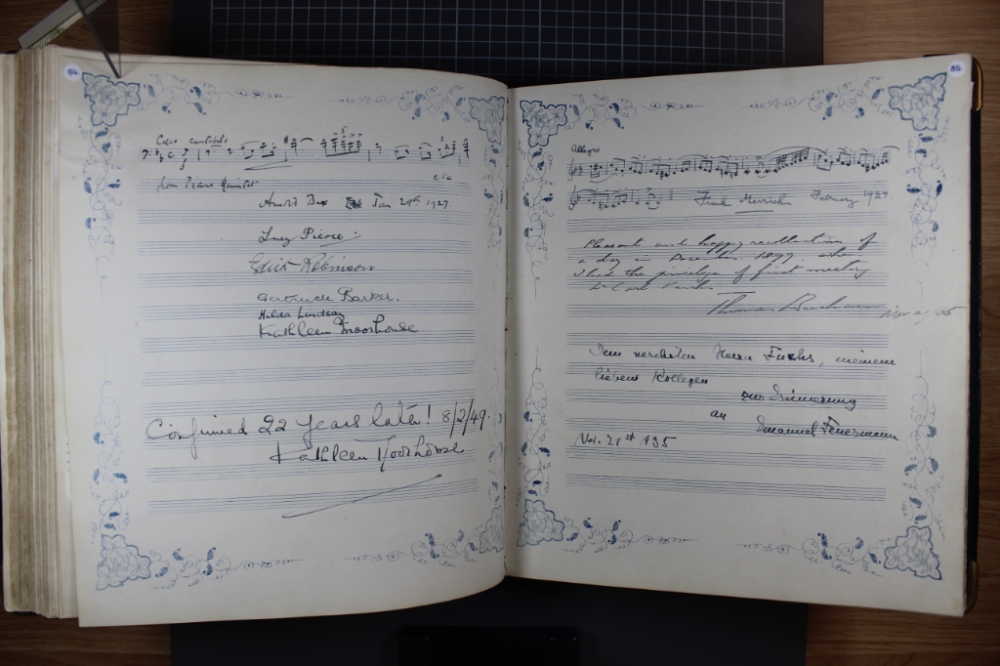 84
Celos cantabile
from Piano Quintet
etc
Arnold Bax Jan 29th 1927.
Lucy Pierce:
Edith Robinson
Gertrude Barker.
Hilda Lindsay
Kathleen Moorhouse
Confirmed 22 years late! 8/2/49.
Kathleen Moorhouse
85
Allegro
Frank Merrick February 1927.
Pleasant and happy recollection of
a day in December 1899 when
I had the privilege of first meeting
Dr Carl Fuchs.
Thomas Beecham Nov 21/35
Dem verehrten Herrn Fuchs, meinem
lieben Kollegen
zur Erinnerung
an
Emanuel Feuermann
Nov. 21st 935